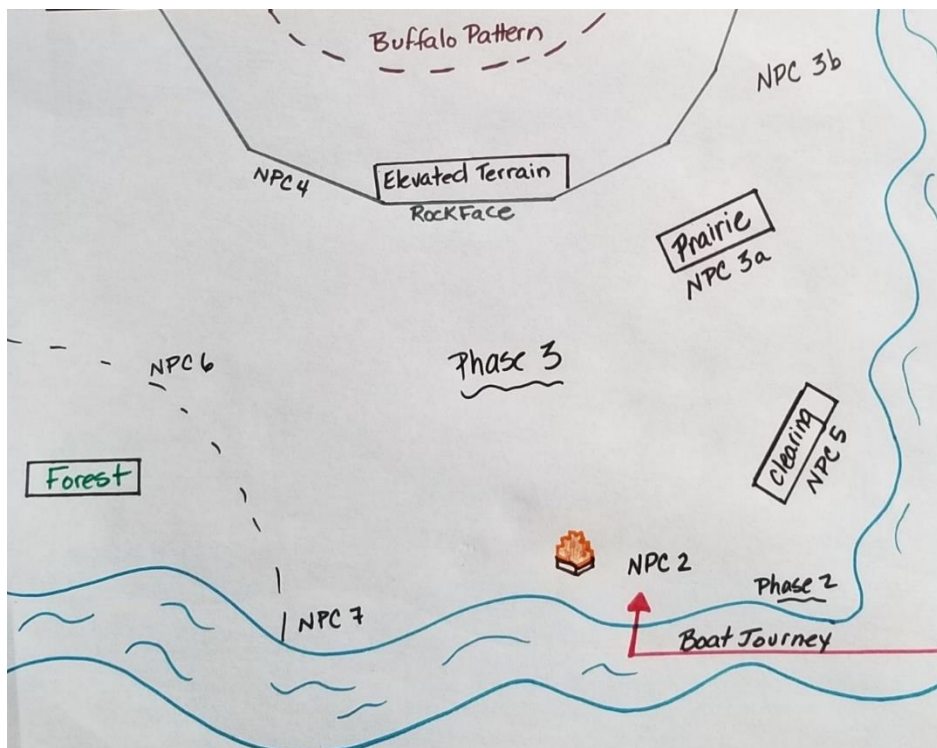 Buffalo Pattern
NPC 3b
NPC4
Elevated Terrain
RockFace
Prairie
NPC 3a
NPC 6
Phase 3
Clearing
NPC 5
Forest
NPC 2
Phase 2
NPC 7
Boat Journey